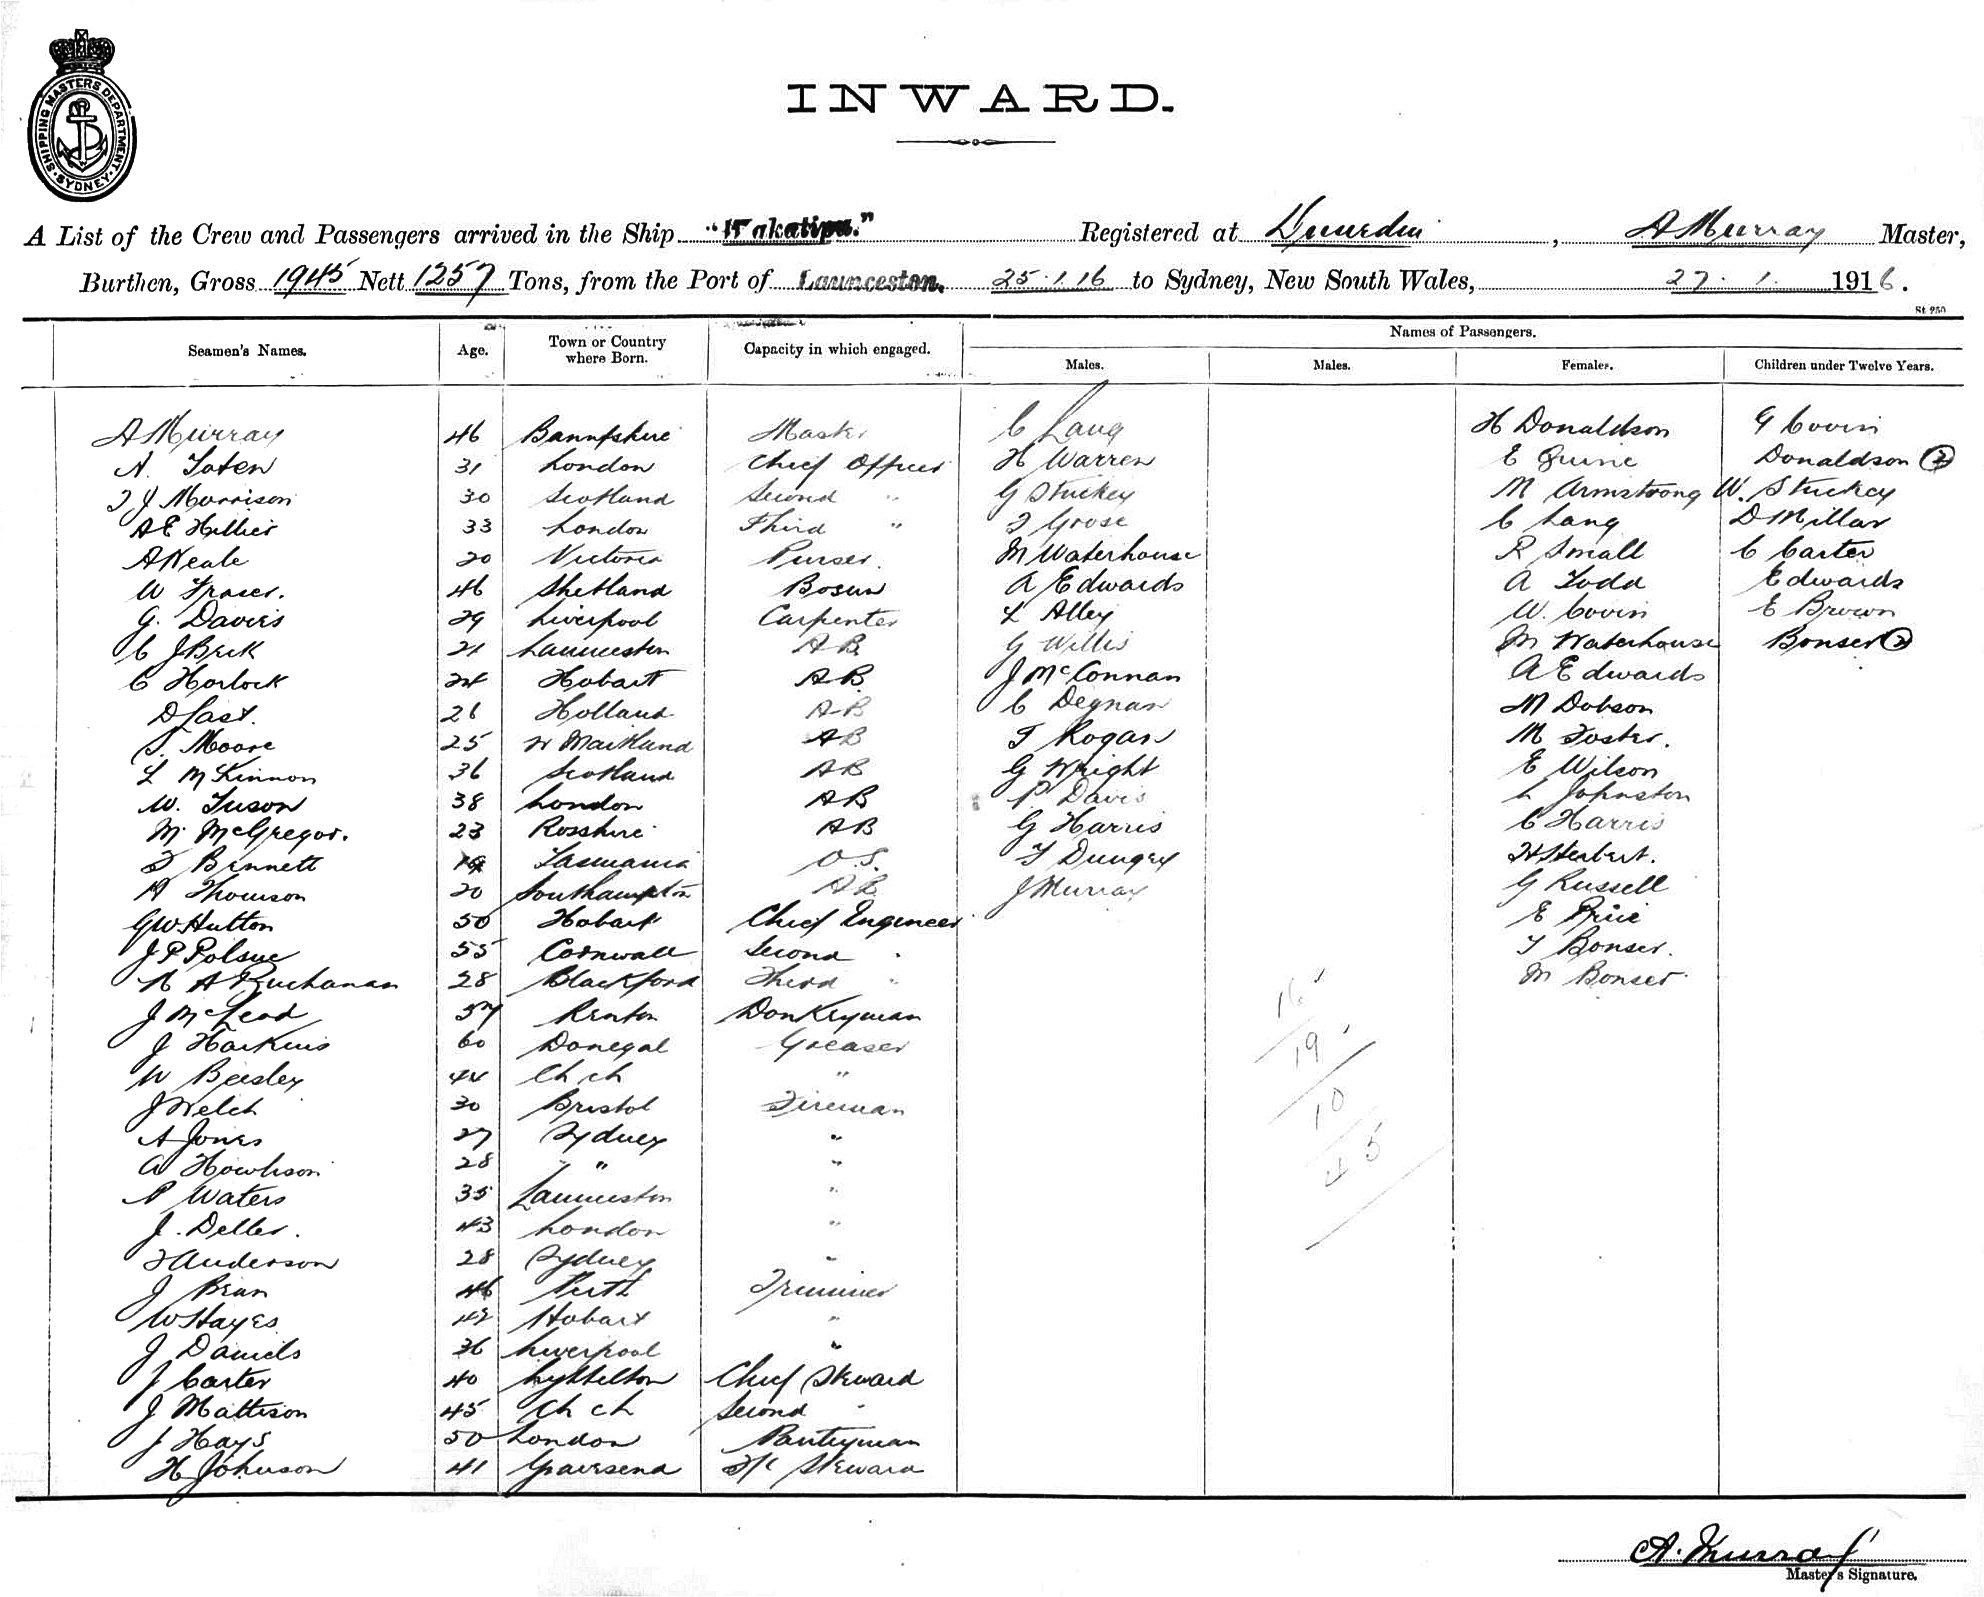 SHIPPING MASTERS DEPARTMENT. SYDNEY
INWARD.
A List of the Crew and Passengers arrived in the Ship "Wakatipu." Registered at Dunedin, A Murray Master,
Burthen, Gross 1945 Nett 1257 Tons, from the Port of Launceston. 25.1.16 to Sydney, New South Wales, 27.1.1916.
St. 250
Seamen's Names. Age. Town or Country where Born. Capacity in which engaged. Names of Passengers.
Males. Males. Females. Children under Twelve Years.
A Murray 46 Bannfshire Master C Lang H Donaldson G Covin
A. Toten 31 London Chief Officer H Warren E Quine Donaldson (2)
T J Morrison 30 Scotland Second " G Stuckey M Armstrong W. Stuckey
AE Hillier 33 London Third " T Goose C Lang D Millar
A Neale 20 Victoria Purser. M Waterhouse R Small C Carter
W Fraser. 46 Shetland Bosun A Edwards A Todd Edwards
G. Davies 29 Liverpool Carpenter L Alley W. Covin E Brown
C J Beck 21 Launceston AB G Willis M Waterhouse Bonser (2)
C Horlock 24 Hobart AB J McConnan A Edwards
D Last. 26 Holland AB C Degnan M Dobson
T. Moore 25 W Maitland AB T Rogan M Foster.
L McKinnon 36 Scotland AB G Wright E Wilson
W. Tuson 38 London AB P. Davis L Johnston
M. McGregor. 23 Rosshire AB G Harris C Harris
T Bennett 19 Tasmania O.S. T Dungey H Herbert.
A Thomson 20 Southampton AB J Murray G Russell
GW Hutton 50 Hobart Chief Engineer E Price
J P Polsue 55 Cornwall Second " T Bonser.
R A Buchanan 28 Blackford Third " M Bonser.
J McLeod 57 Renton Donkeyman
J Harkins 60 Donegal Greaser
W Beesley 44 Ch ch "
J Welch 30 Bristol Fireman
A Jones 27 Sydney "
A Howhison 28 " "
P Waters 35 Launceston "
J. Deller. 43 London "
T Anderson 28 Sydney "
J Bean 46 Perth Trimmer
W Hayes 42 Hobart "
J Daniels 36 Liverpool "
J Carter 40 Lyttelton Chief Steward
J Mattison 45 Ch ch Second "
J Hays 50 London Pantryman
H Johnson 41 Gravesend F/C Steward
16
19
10
45
A. Murray
Master's Signature.